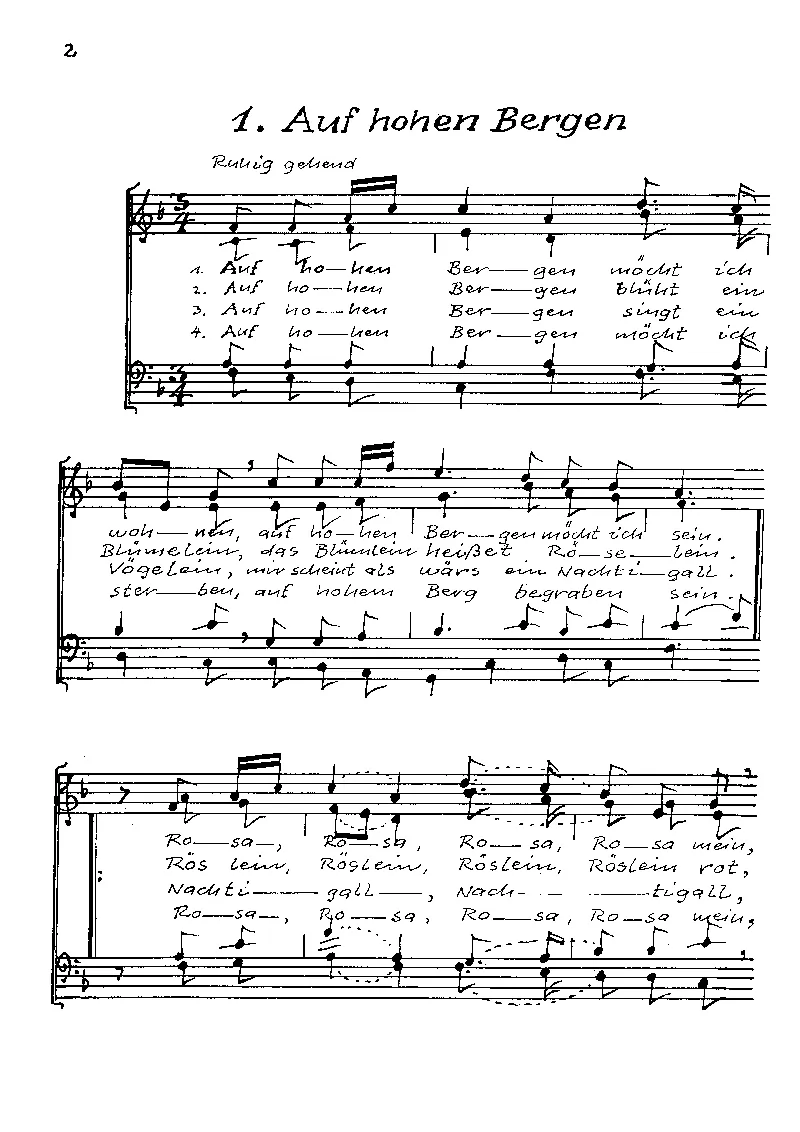 2.
1. Auf hohen Bergen
Ruhig gehend
3/4
1. Auf ho—hen Ber——gen möcht ich
2. Auf ho——hen Ber——gen blüht ein
3. Auf ho---hen Ber——gen singt ein
4. Auf ho——hen Ber——gen möcht ich
3/4
woh—nen, auf ho—hen Ber——gen möcht ich sein.
Blümelein, das Blümlein heißet Rö—se—lein.
Vögelein, mir scheint als wärs ein Nachti—gall.
ster——ben, auf hohem Berg begraben sein.
Ro——sa—, Ro——sa, Ro——sa, Ro—sa mein,
Rös lein, Röslein, Röslein, Röslein rot,
Nachti—— gall——, Nach- - ——tigall,
Ro——sa—, Ro——sa, Ro——sa, Ro—sa mein,